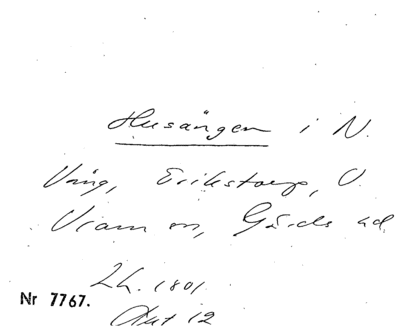 Husängen i N.
Vång, Erikstorp, V.
Vram sn, Gärds hd
Lh. 1801
Nr 7767.
Akt 12